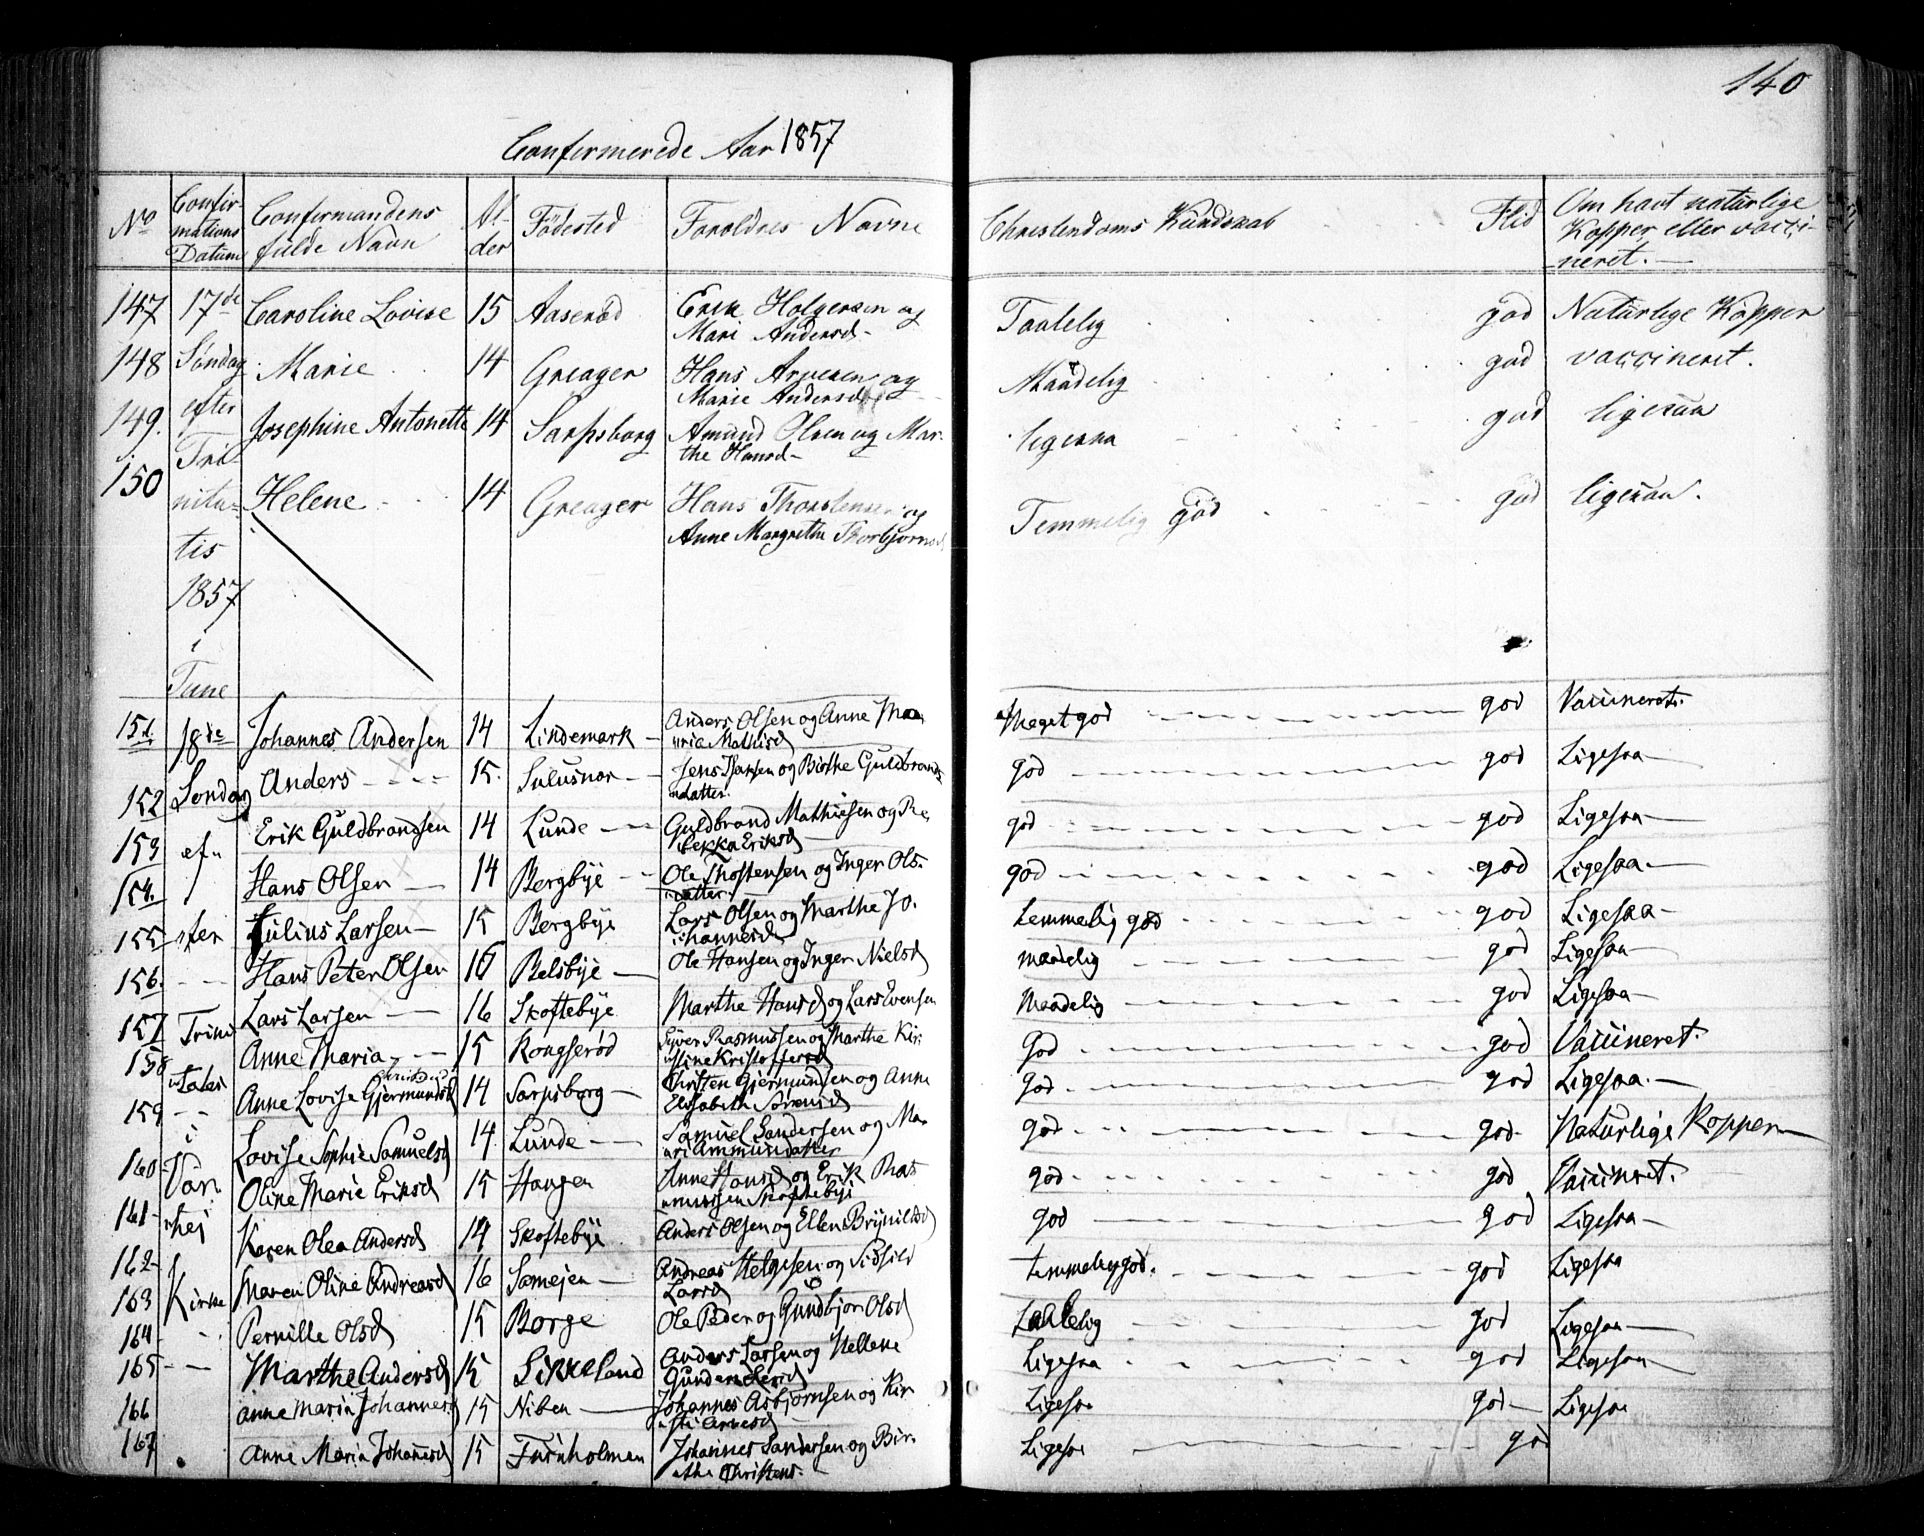 140
Confirmerede Aar 1857
No Confirmations Datum Confirmandens fulde Navn Alder Födested Foroldres Navne Christendoms Kundskab Flid Om havt naturlige Kopper eller vaccineret.
147 17de Caroline Lovise 15 Aaserød Erik Holgersen og Taalelig god Naturlige Kopper
Mari Andersd
148 Søndag Marie 14 Greager Hans Arvesen og Maadelig god vaccineret.
Marie Andersd
149. efter Josephine Antonette 14 Sarpsborg Amund Olsen og Mar- ligesaa god ligesaa
Tri- the Hansd
150 nita- Helene 14 Greager Hans Thorstensen og Temmelig god god ligesaa.
Anne Margrethe
tis
1857
i
Tune
151. 18de Johannes Andersen 14 Lindemark Anders Olsen og Anne Ma Meget god god Vaccineret.
ria Mathisd
152 Søndag Anders 15. Sulusnor Jens og Birthe Guldbrands god god Ligesaa
datter
153 ef Erik Guldbrandsen 14 Lunde Guldbrand Mathiesen og Re god god Ligesaa
bekka Eriksd
154. Hans Olsen 14 Bergbye Ole Thostensen og Inger Ols god god Ligesaa
datter
155 ter Julius Larsen 15 Bergbye Lars Olsen og Marthe Jo. temmelig god god Ligesaa
hannesd
156. Hans Peter Olsen 16 Belsbye Ole Hansen og Inger Nielsd maadelig god Ligesaa
157 Trini Lars Larsen 16 Skoftebye Marthe Hansd og Lars Evensen Maadelig god Ligesaa
158 Anne Maria 15 Kongserød Syver Rasmussen og Marthe Kir god god Vaccineret.
stine Kristoffersd
159 tatis Anne Lovise Gjermundsd 14 Sarpsborg Christen Gjermundsen og Anne god god Ligesaa
Elisabeth Sørensd
160 i Lovise Sophie Samuelsd 14 Lunde Samuel Sandersen og Ma god god Naturlige Kopper
ri Ammundatter
161 Var Oline Marie Eriksd 15 Haugen Anne Hansd og Erik Ras god god Vaccineret.
mussen Skoftebye
162 tej Karen Olea Andersd 14 Skoftebye Anders Olsen og Ellen Brynildsd god god Ligesaa
163 Kirke Maren Oline Andreasd 16 Somejen Andreas Helgesen og Sidsild temmelig god. god Ligesaa
Larsd
164 Pernille Olsd 15 Borge Ole Peder og Gundbjor Olsd taalelig god Ligesaa
165 Marthe Andersd 15 Likkeland Anders Larsen og Hellene Ligesaa god Ligesaa
Gundersd
166 Anne Maria Johannesd 15 Niben Johannes Asbjørnsen og Kir Ligesaa god Ligesaa
sti Arnesd
167 Anne Maria Johannesd 15 Furuholmen Johannes Sandersen og Bir. Ligesaa god
the Christens.